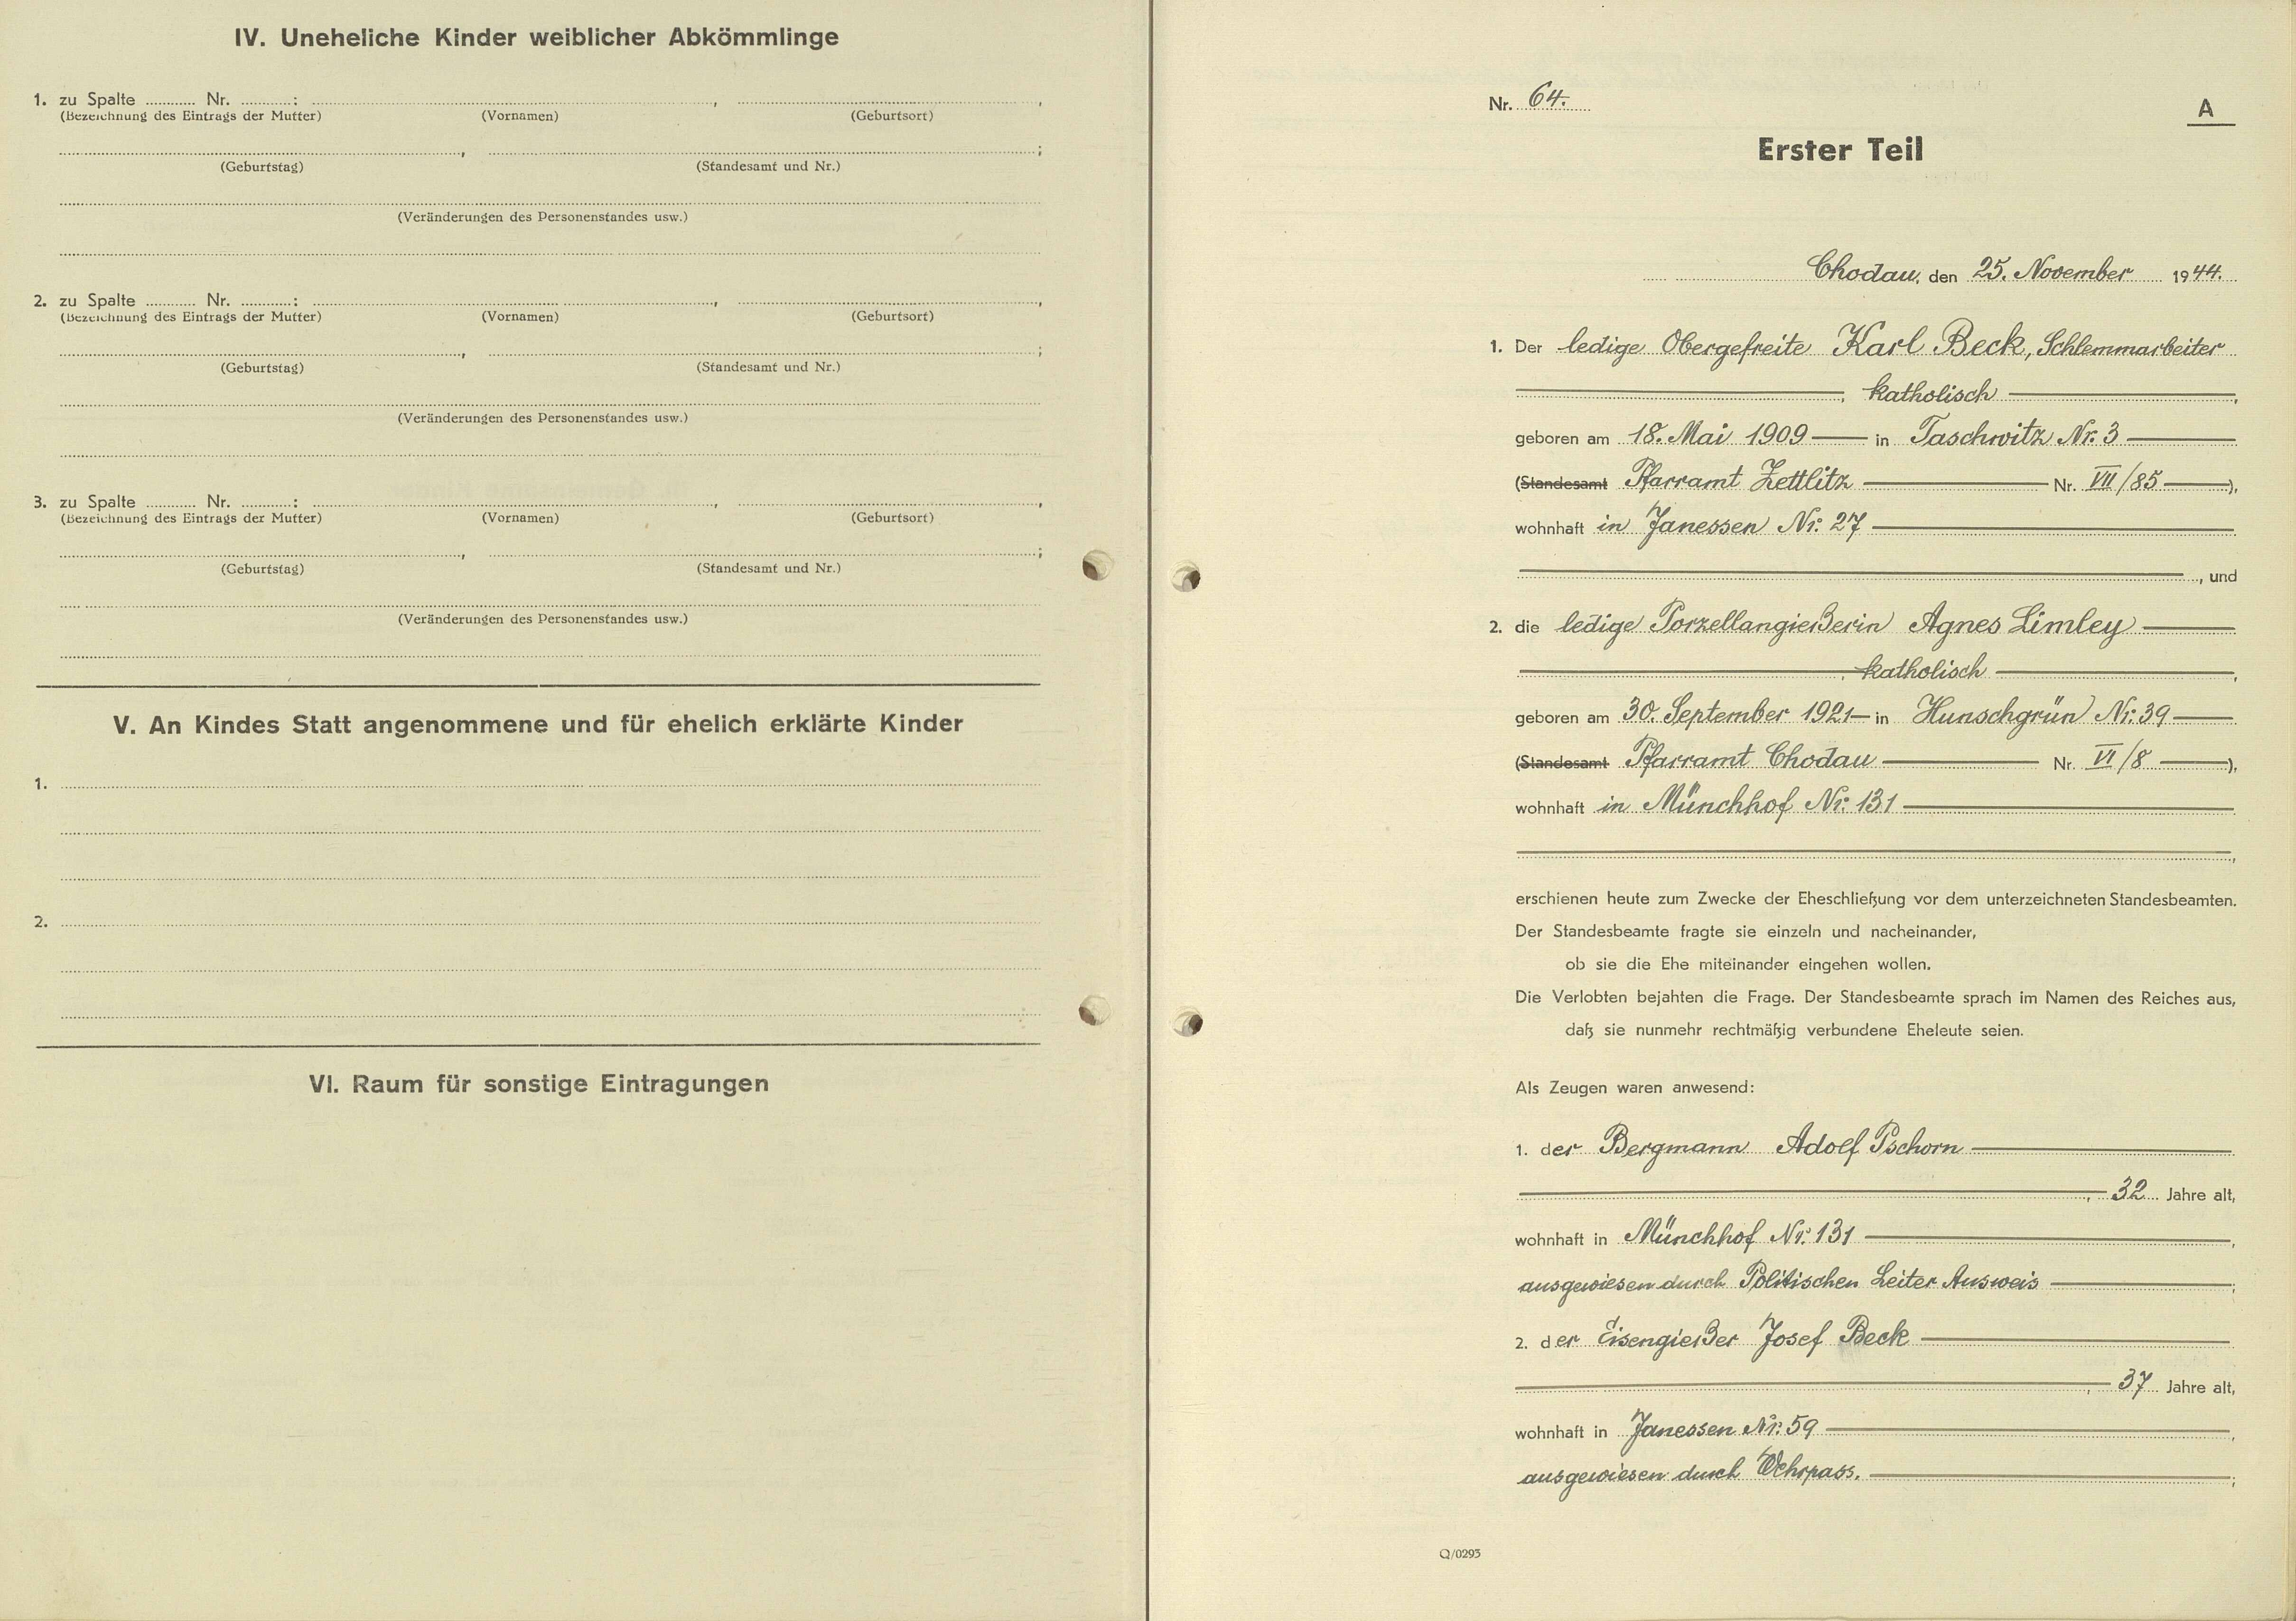 IV. Uneheliche Kinder weiblicher Abkömmlinge
1. zu Spalte Nr. : , ,
(Bezeichnung des Eintrags der Mutter) (Vornamen) (Geburtsort)
, ;
(Geburtstag) (Standesamt und Nr.)
(Veränderungen des Personenstandes usw.)
2. zu Spalte Nr. : , ,
(Bezeichnung des Eintrags der Mutter) (Vornamen) (Geburtsort)
, ;
(Geburtstag) (Standesamt und Nr.)
(Veränderungen des Personenstandes usw.)
3. zu Spalte Nr. : , ,
(Bezeichnung des Eintrags der Mutter) (Vornamen) (Geburtsort)
, ;
(Geburtstag) (Standesamt und Nr.)
(Veränderungen des Personenstandes usw.)
V. An Kindes Statt angenommene und für ehelich erklärte Kinder
1.
2.
VI. Raum für sonstige Eintragungen
Nr. 64.
A
Erster Teil
Chodau, den 25. November 1944.
1. Der ledige Obergefreite Karl Beck, Schlemmarbeiter
, katholisch ,
geboren am 18. Mai 1909 — in Taschwitz Nr. 3 —
(Standesamt Pfarramt Zettlitz — Nr. VII/85 —),
wohnhaft in Janessen Nr. 27 —
, und
2. die ledige Porzellangießerin Agnes Limley —
, katholisch ,
geboren am 30. September 1921 — in Hunschgrün Nr. 39 —
(Standesamt Pfarramt Chodau — Nr. VI/8 —),
wohnhaft in Münchhof Nr. 131 —
,
erschienen heute zum Zwecke der Eheschließung vor dem unterzeichneten Standesbeamten.
Der Standesbeamte fragte sie einzeln und nacheinander,
ob sie die Ehe miteinander eingehen wollen.
Die Verlobten bejahten die Frage. Der Standesbeamte sprach im Namen des Reiches aus,
daß sie nunmehr rechtmäßig verbundene Eheleute seien.
Als Zeugen waren anwesend:
1. der Bergmann Adolf Pschorn —
, 32 Jahre alt,
wohnhaft in Münchhof Nr. 131 —,
ausgewiesen durch Politischen Leiter Ausweis —;
2. der Eisengießer Josef Beck —
, 37 Jahre alt,
wohnhaft in Janessen Nr. 59 —,
ausgewiesen durch Wehrpass. —;
Q/0293